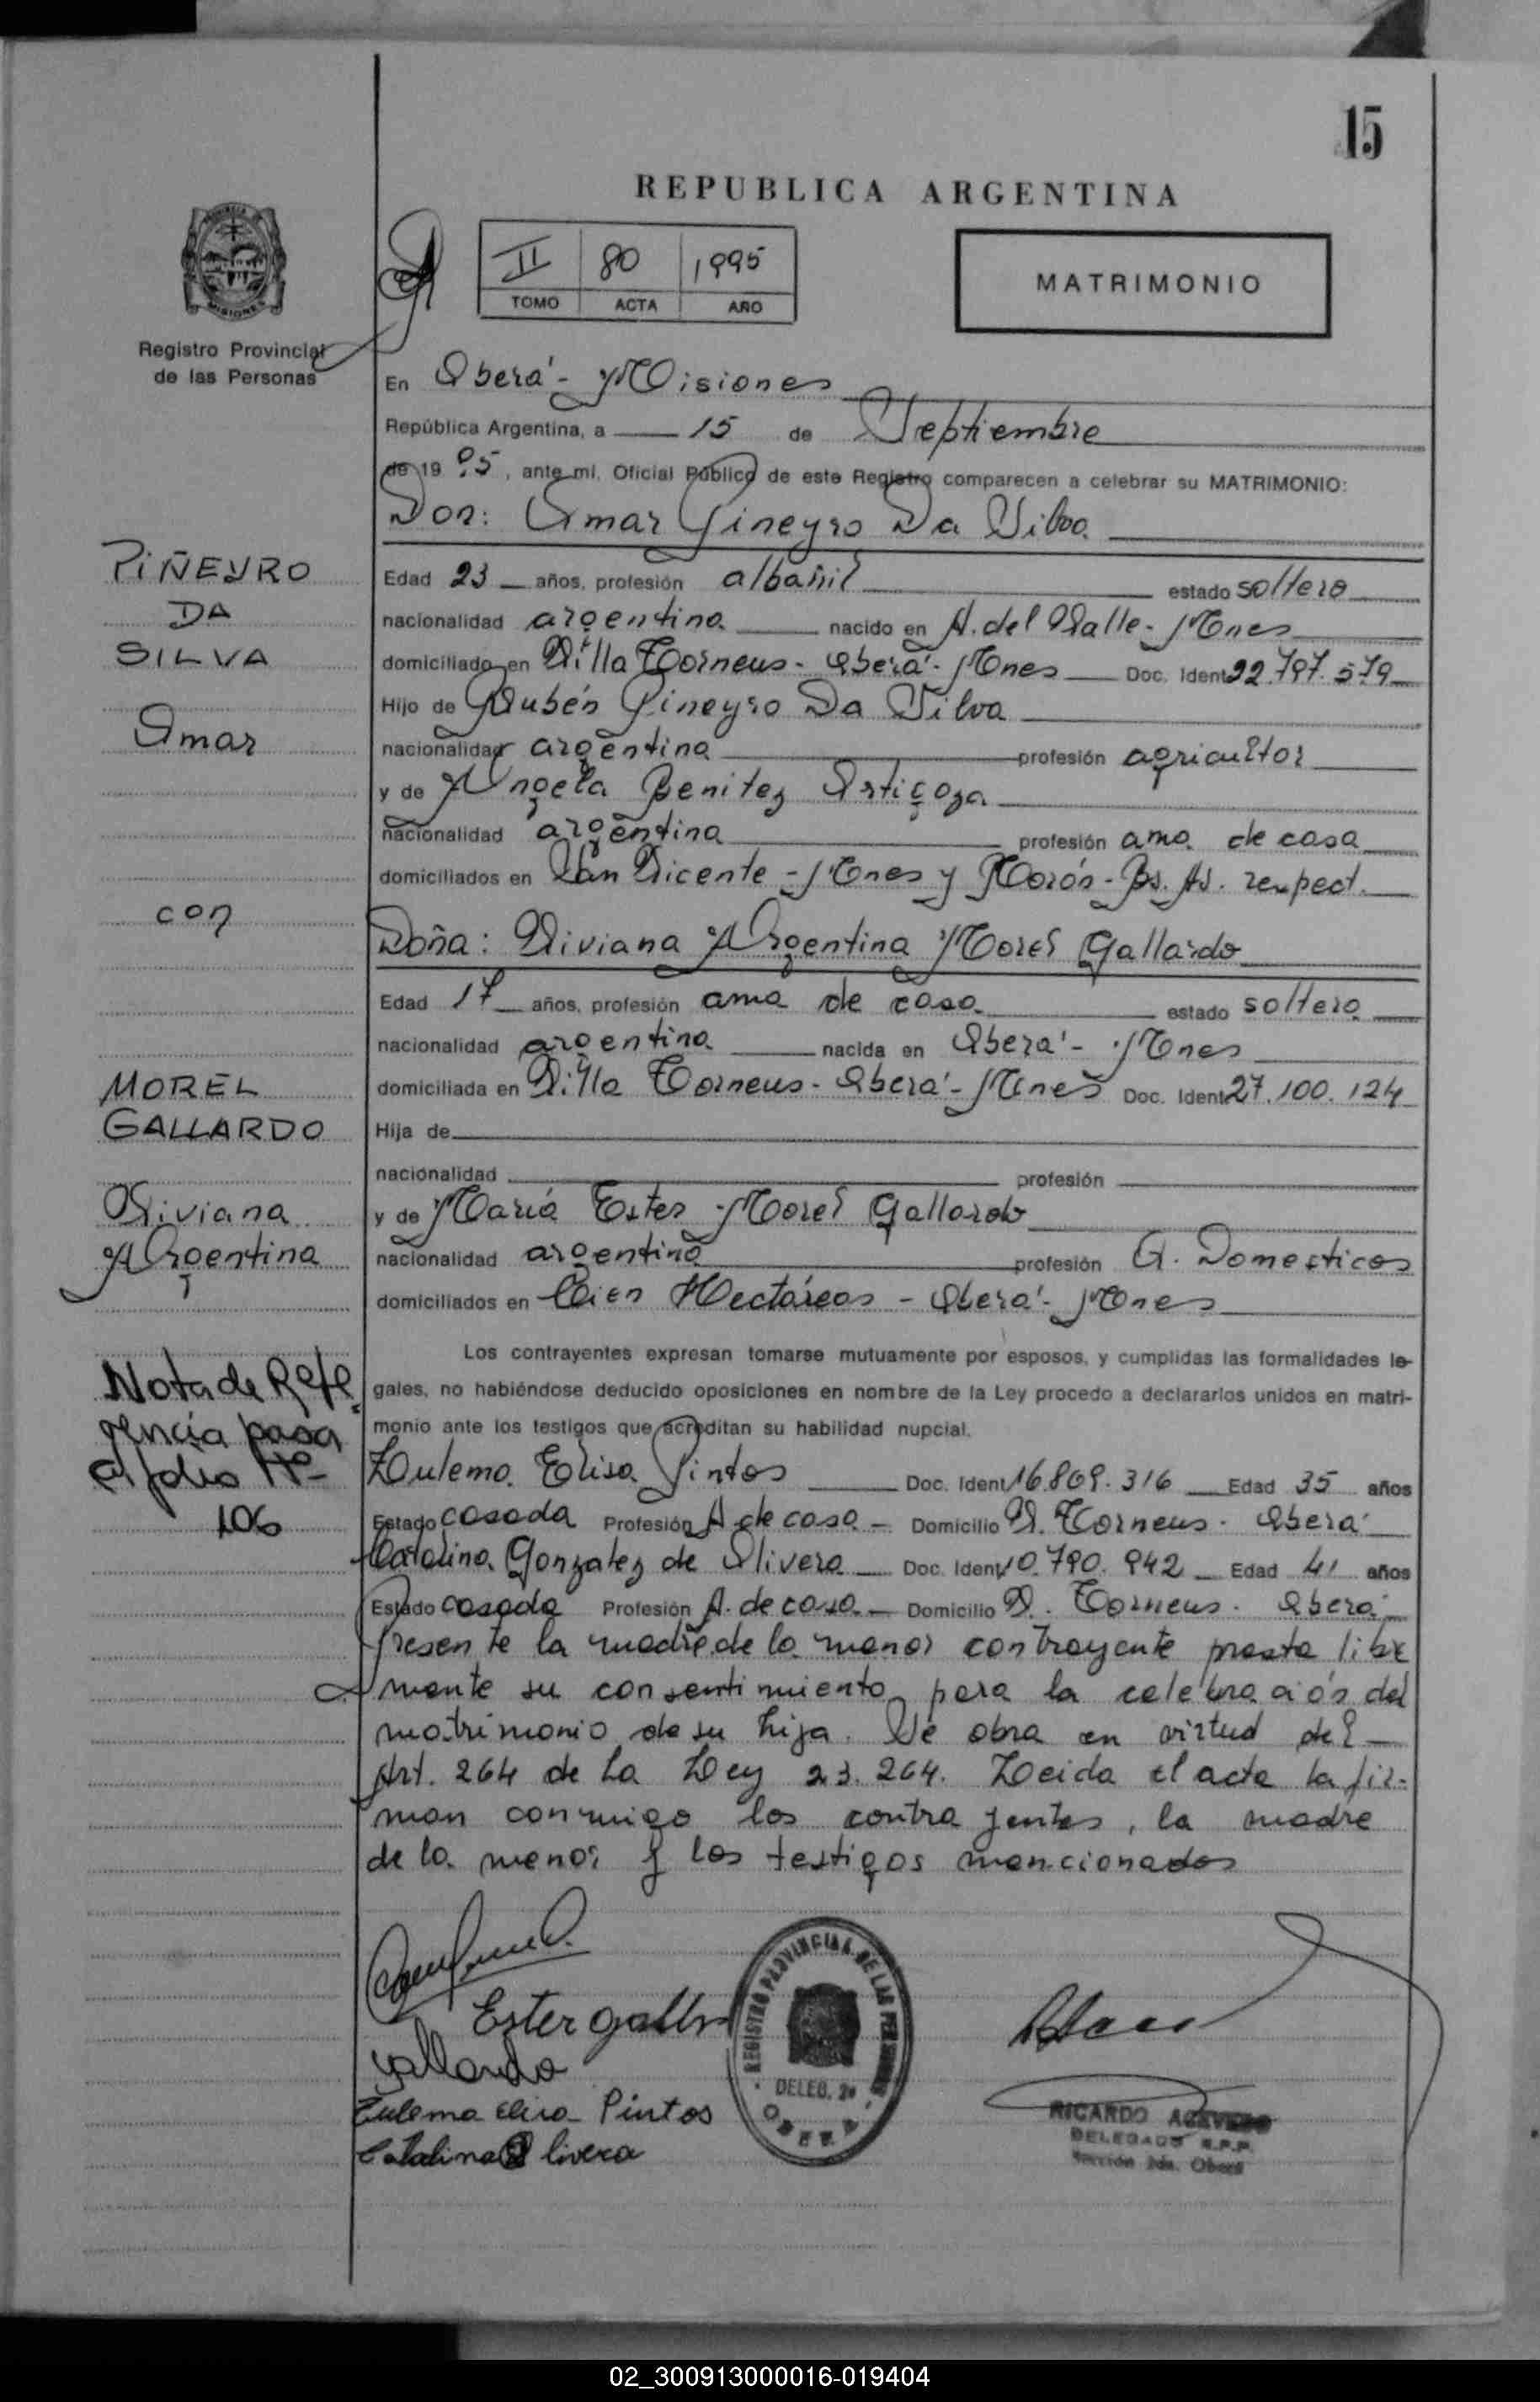 15
REPUBLICA ARGENTINA
II 80 1995
TOMO ACTA AÑO
MATRIMONIO
MISIONES
Registro Provincial
de las Personas
En Oberá - Misiones
República Argentina, a 15 de Septiembre
de 1995, ante mí, Oficial Público de este Registro comparecen a celebrar su MATRIMONIO:
Don: Omar Pineyro Da Silva
Edad 23 años, profesión albañil estado soltero
nacionalidad argentina nacido en A. del Valle - Mnes
domiciliado en Villa Torneus - Oberá - Mnes Doc. Ident 22.797.579
Hijo de Rubén Pineyro Da Silva
nacionalidad argentina profesión agricultor
y de Angela Benitez Ortigoza
nacionalidad argentina profesión ama de casa
domiciliados en San Vicente - Mnes y Morón - Bs. As. respect.
Doña: Viviana Argentina Morel Gallardo
Edad 17 años, profesión ama de casa estado soltera
nacionalidad argentina nacida en Oberá - Mnes
domiciliada en Villa Torneus - Oberá - Mnes Doc. Ident 27.100.124
Hija de
nacionalidad profesión
y de María Ester Morel Gallardo
nacionalidad argentina profesión Q. Domesticos
domiciliados en Cien Hectáreas - Oberá - Mnes
Los contrayentes expresan tomarse mutuamente por esposos, y cumplidas las formalidades le-
gales, no habiéndose deducido oposiciones en nombre de la Ley procedo a declararlos unidos en matri-
monio ante los testigos que acreditan su habilidad nupcial.
Zulema Elisa Pintos Doc. Ident 16.869.316 Edad 35 años
Estado casada Profesión A de casa - Domicilio V. Torneus - Oberá
Catalina Gonzalez de Olivera Doc. Ident 10.790.942 Edad 41 años
Estado casada Profesión A. de casa - Domicilio V. Torneus - Oberá
Presente la madre de la menor contrayente presta libre
mente su consentimiento para la celebración del
matrimonio de su hija. Se obra en virtud del
Art. 264 de La Ley 23.264. Leida el acta la fir-
man conmigo los contrayentes, la madre
de la menor y los testigos mencionados
PIÑEYRO
DA
SILVA
Omar
con
MOREL
GALLARDO
Viviana
Argentina
Nota de Refe
rencia pasa
al folio Nº
106
Ester
Gallardo
Zulema Elisa Pintos
Catalina Olivera
REGISTRO PROVINCIAL DE LAS PERSONAS
DELEG. 2ª
OBERA
RICARDO ACEVEDO
DELEGADO R.P.P.
Sección 2da. Oberá
02_300913000016-019404